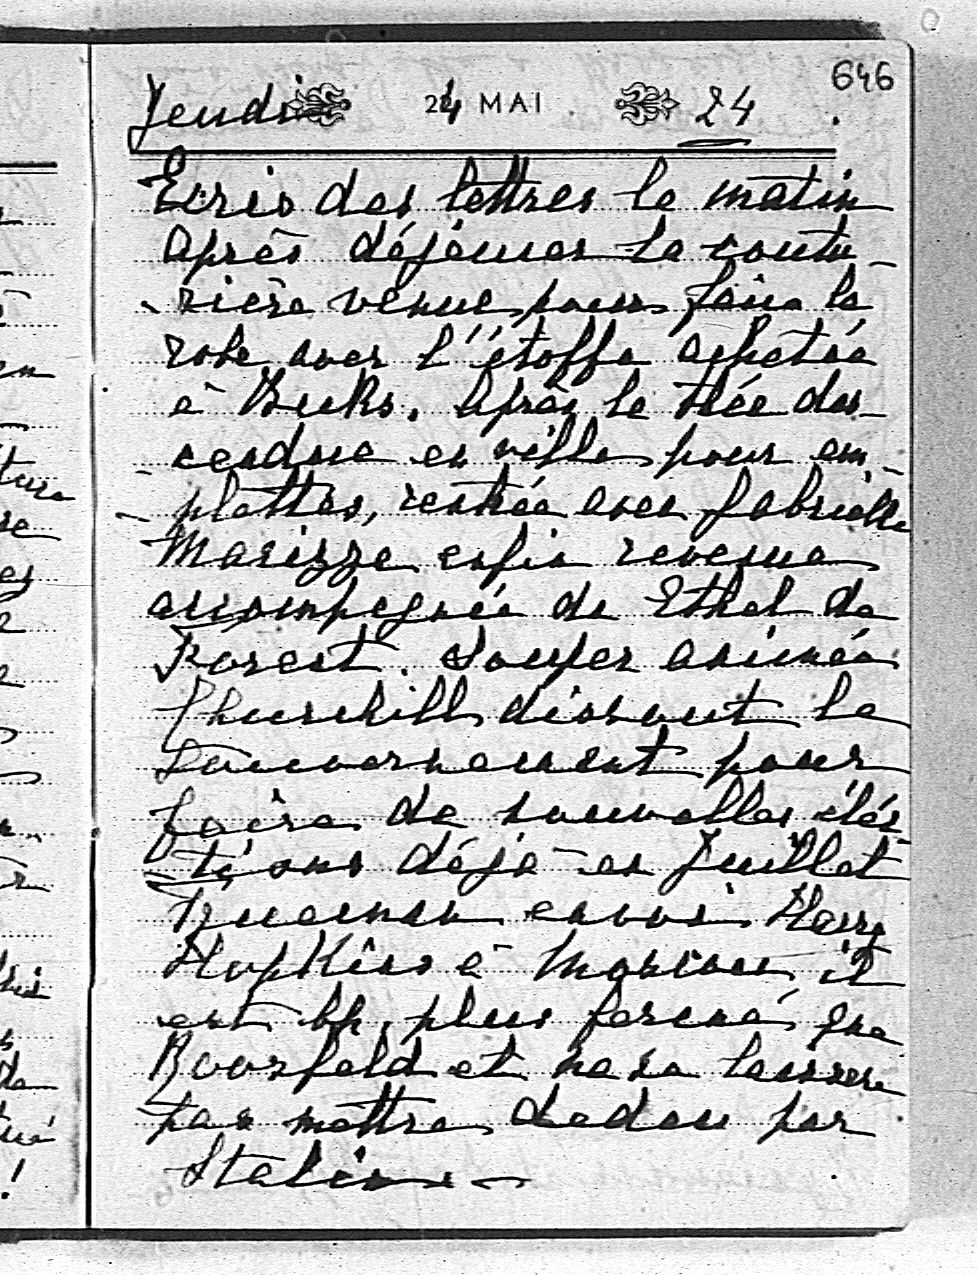 646
Jeudi 24 MAI 24
Ecris des lettres le matin
Après déjeuner la coutu-
rière venue pour faire la
robe avec l'étoffe achetée
à Bucks. Après le thée des-
cendue en ville pour em-
plettes, rentrée avec Gabrielle
Marizze enfin revenue
accompagnée de Ethel de
Forest. Souper animée
Churchill dissout le
Gouvernement pour
faire de nouvelles élec-
tions déjà en Juillet
Trueman envoi Harry
Hopkins à Moscou, il
est bp. plus fermé que
Roosfeld et ne se laissera
pas mettre dedan par
Staline